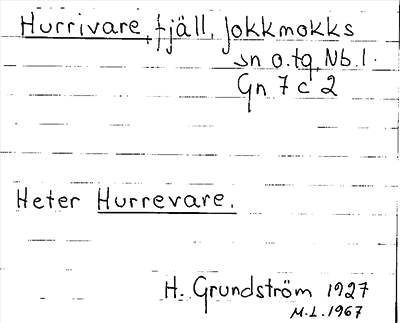 Hurrivare, fjäll, Jokkmokks
sn o. tg, Nb. l.
Gn 7 c 2
Heter Hurrevare.
H. Grundström 1927
M.L. 1967